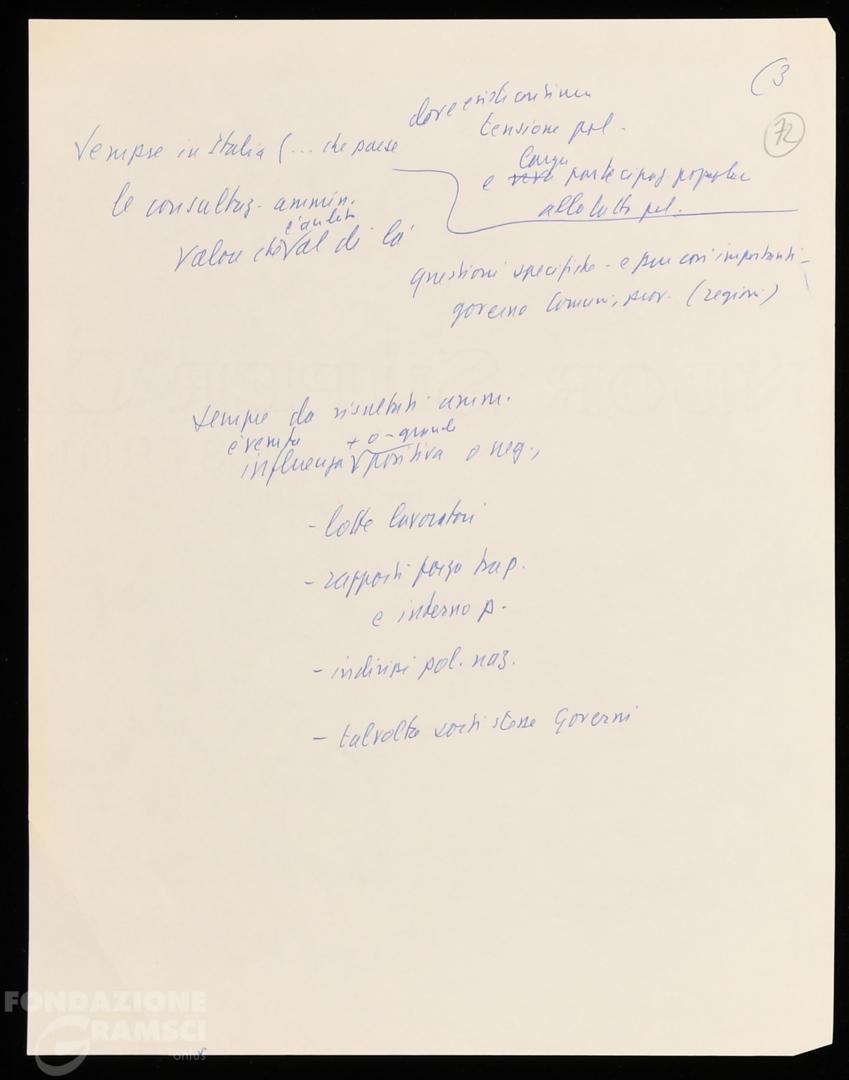 (3
72
Sempre in Italia (... che paese
dove esiste continua
tensione pol.
e viva larga partecipaz popolare
alla lotta pol.
le consultaz. ammin.
valore che è andato al di là
questioni specifiche - e pur così importanti -
governo Comuni, prov. (regioni)
sempre da risultati amm.
è venuta + o - grande
influenza positiva o neg.,
- lotte lavoratori
- rapporti forza tra p.
e interno p.
- indirizzi pol. naz.
- talvolta sorti stesse Governi
FONDAZIONE
GRAMSCI
onlus